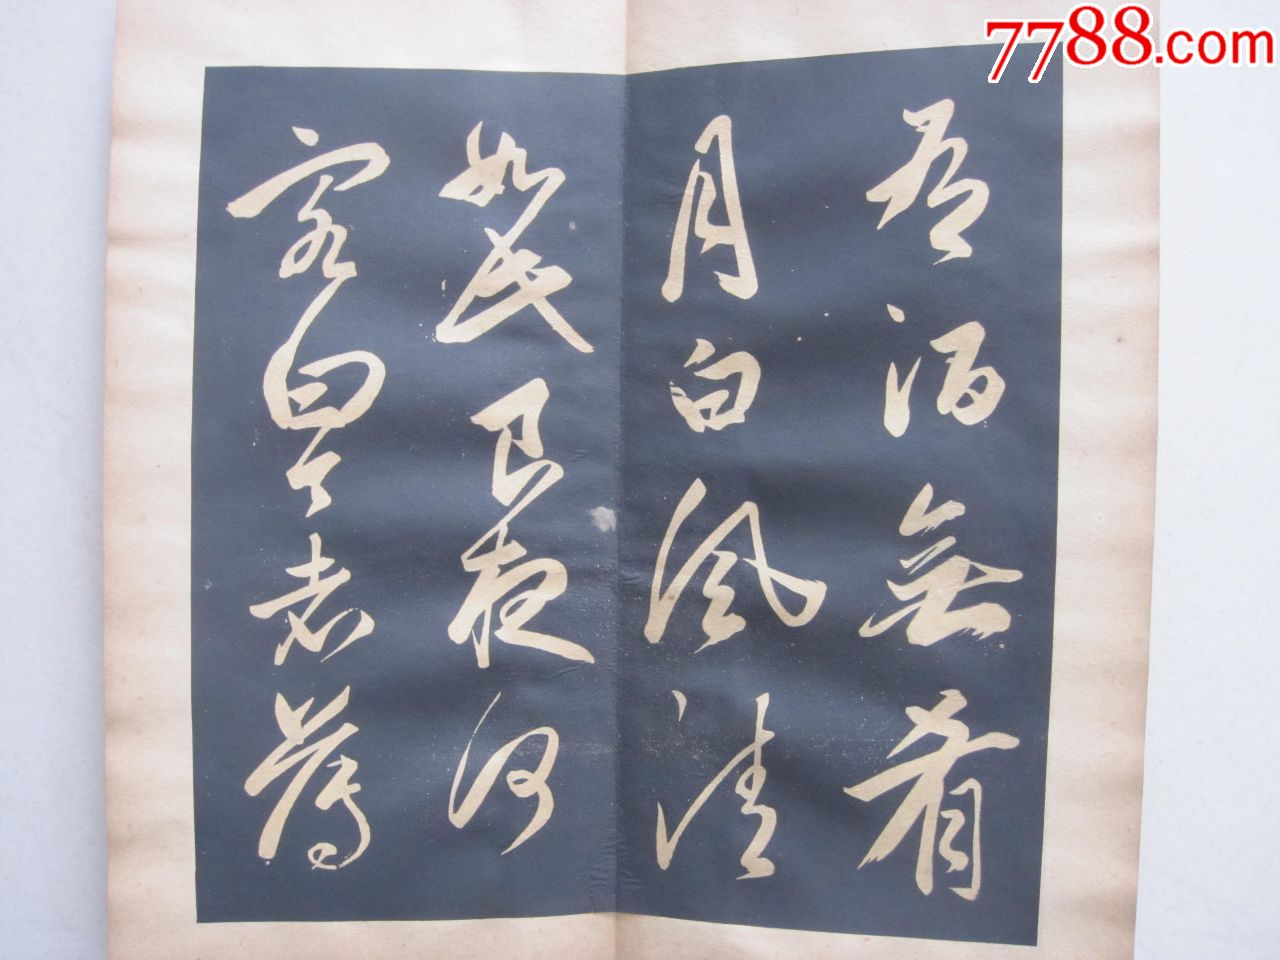 7788.com
有酒無肴
月白風清
如此良夜何
客曰今者薄